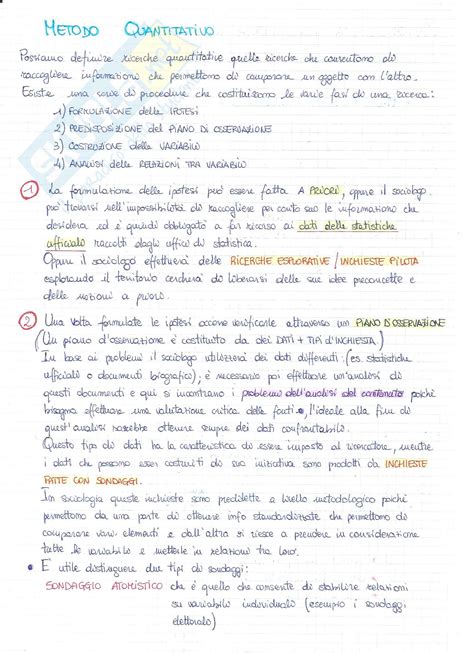 METODO QUANTITATIVO
Possiamo definire ricerche quantitative quelle ricerche che consentono di
raccogliere informazioni che permettono di comparare un oggetto con l'altro.
Esiste una serie di procedure che costituiscono le varie fasi di una ricerca:
1) FORMULAZIONE delle IPOTESI
2) PREDISPOSIZIONE del PIANO DI OSSERVAZIONE
3) COSTRUZIONE delle VARIABILI
4) ANALISI delle RELAZIONI TRA VARIABILI
1) La formulazione delle ipotesi può essere fatta A PRIORI, oppure il sociologo
può trovarsi nell'impossibilità di raccogliere per conto suo le informazioni che
desidera ed è quindi obbligato a far ricorso ai dati delle statistiche
ufficiali raccolti dagli uffici di statistica.
Oppure il sociologo effettuerà delle RICERCHE ESPLORATIVE / INCHIESTE PILOTA
esplorando il territorio cercherà di liberarsi delle sue idee preconcette e
delle nozioni a priori.
2) Una volta formulate le ipotesi occorre verificarle attraverso un PIANO D'OSSERVAZIONE
(Un piano d'osservazione è costituito da dei DATI + TIPI D'INCHIESTA)
In base ai problemi il sociologo utilizzerà dei dati differenti: (es. statistiche
ufficiali o documenti biografici); è necessario poi effettuare un'analisi di
questi documenti e qui si incontrano i problemi dell'analisi del contenuto poiché
bisogna effettuare una valutazione critica delle fonti, l'ideale alla fine di
quest'analisi sarebbe ottenere sempre dei dati confrontabili.
Questo tipo di dati ha la caratteristica di essere imposto al ricercatore, mentre
i dati che possono esser costruiti di sua iniziativa sono prodotti da INCHIESTE
FATTE CON SONDAGGI.
In sociologia queste inchieste sono predilette a livello metodologico poiché
permettono da una parte di ottenere info standardizzate che permettono di
comparare vari elementi e dall'altra si riesce a prendere in considerazione
tutte le variabili e metterle in relazione tra loro.
• È utile distinguere due tipi di sondaggi:
SONDAGGIO ATOMISTICO che è quello che consente di stabilire relazioni
su variabili individuali (esempio i sondaggi
elettorali)